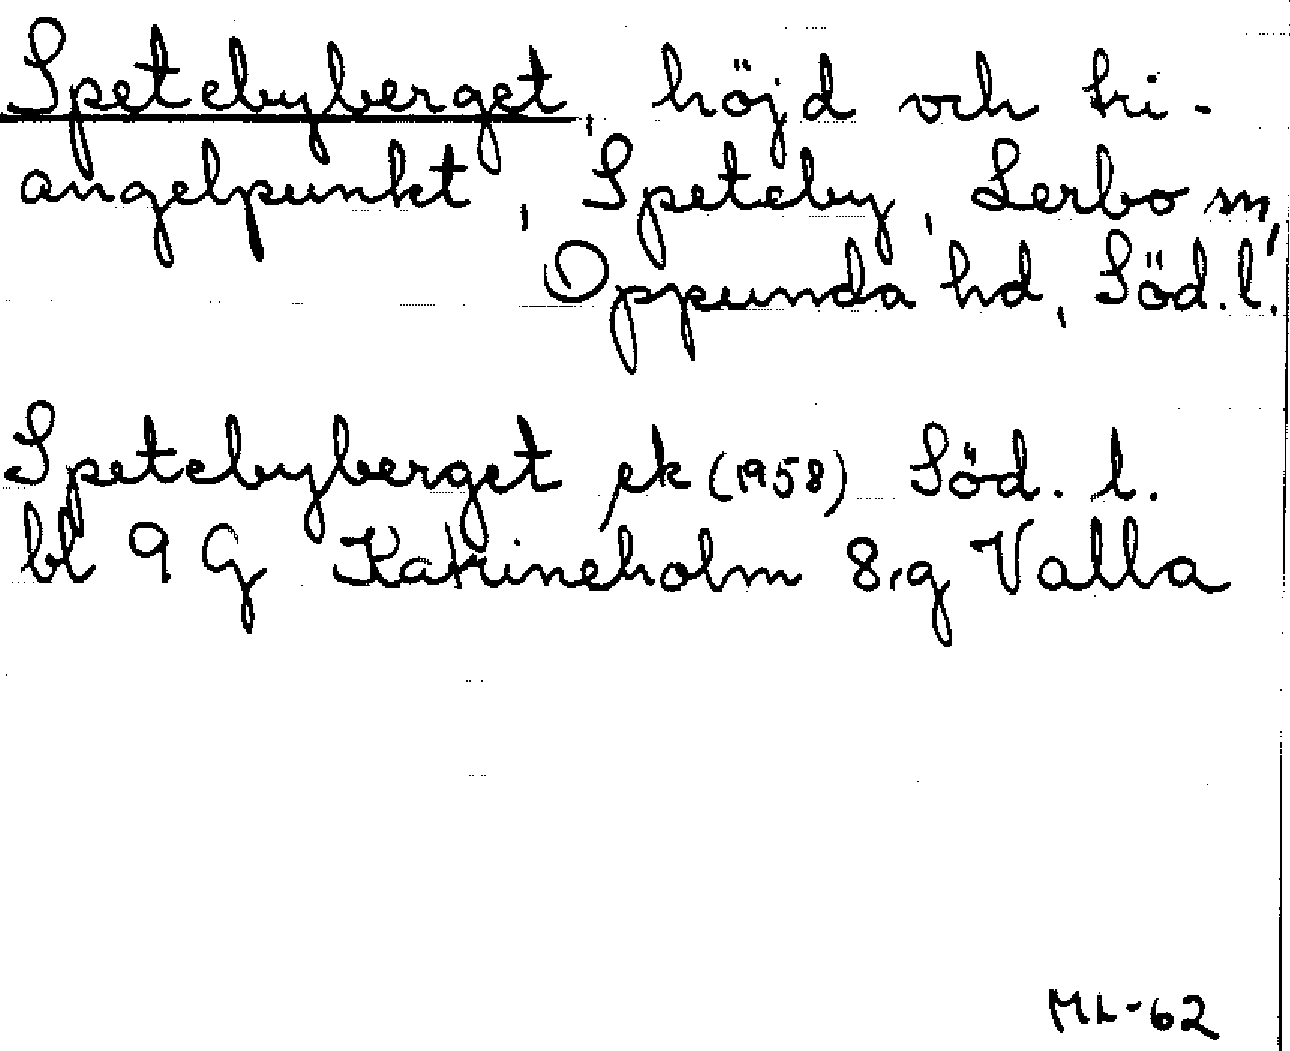 Spetebyberget, höjd och tri-
angelpunkt, Speteby, Lerbo sn,
Oppunda hd, Söd. l.
Spetebyberget ek (1958) Söd. l.
bl 9 G Katrineholm 8,g Valla
ML-62